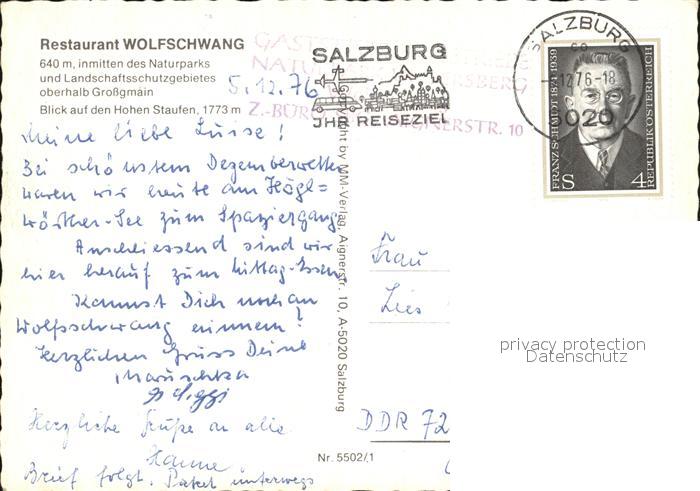 Restaurant WOLFSCHWANG
640 m, inmitten des Naturparks
und Landschaftsschutzgebietes
oberhalb Großgmain
Blick auf den Hohen Staufen, 1773 m
5.12.76
SALZBURG
IHR REISEZIEL
SALZBURG
12.76-18
5020
FRANZ SCHMIDT 1874-1939
REPUBLIK ÖSTERREICH
S 4
Z.-BÜR
AIGNERSTR. 10
Meine liebe Luise!
Bei schönstem Dezemberwetter
waren wir heute am Högl=
wörther-See zum Spaziergang
Anschliessend sind wir
hier herauf zum Mittag-Essen
Kannst Dich noch an
Wolfsschwang erinnern!
Herzlichen Gruss Deine
Herzliche Grüße an alle
Hanne
Brief folgt. Paket unterwegs
Copyright by MM-Verlag, Aignerstr. 10, A-5020 Salzburg
Nr. 5502/1
Frau
Lies
DDR 72
privacy protection
Datenschutz